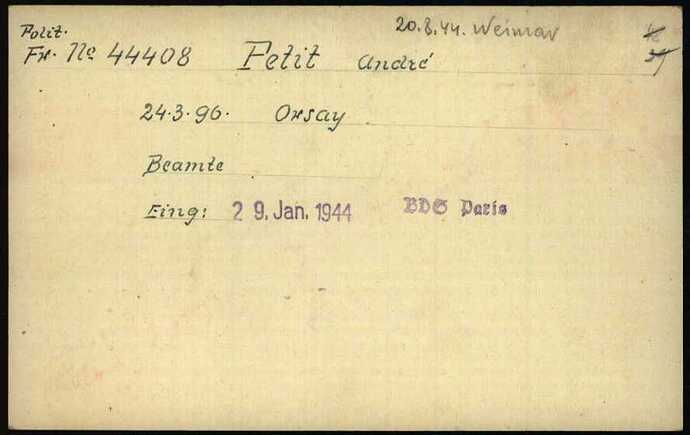 Polit. 20.8.44. Weimar
Fr. No 44408 Petit André
24.3.96. Orsay
Beamte
Eing: 29. Jan. 1944 BDS Paris